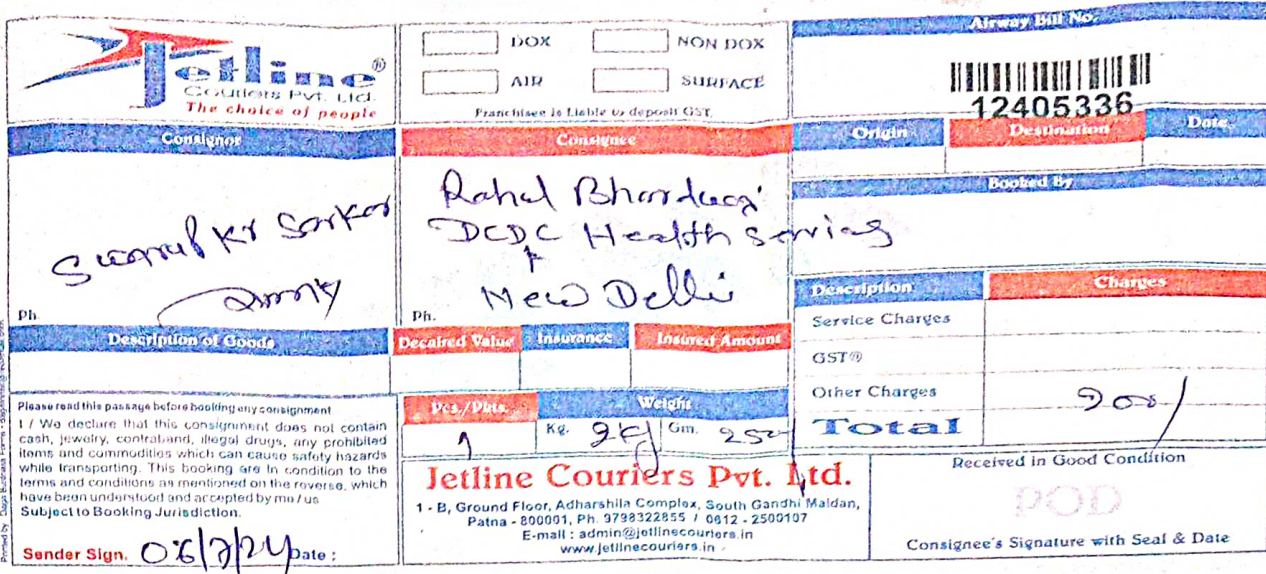 Jetline®
Couriers Pvt. Ltd.
The choice of people
DOX
NON DOX
AIR
SURFACE
Franchisee is Liable to deposit GST.
Airway Bill No.
12405336
Consignor
Consignee
Origin
Destination
Date
Kr Sarkar
Ph.
Rahul
DCDC Health
New Delhi
Ph.
Booked By
Description
Charges
Service Charges
GST@
Other Charges
Total
200/
Description of Goods
Decaired Value
Insurance
Insured Amount
Pcs./Pkts.
Weight
1
Kg. 2kg Gm. 250
Please read this passage before booking any consignment
I / We declare that this consignment does not contain
cash, jewelry, contraband, illegal drugs, any prohibited
items and commodities which can cause safety hazards
while transporting. This booking are in condition to the
terms and conditions as mentioned on the reverse, which
have been understood and accepted by me / us
Subject to Booking Jurisdiction.
Sender Sign. 06/7/24 Date :
Jetline Couriers Pvt. Ltd.
1 - B, Ground Floor, Adharshila Complex, South Gandhi Maidan,
Patna - 800001, Ph. 9798322855 / 0612 - 2500107
E-mail : admin@jetlinecouriers.in
www.jetlinecouriers.in
Received in Good Condition
POD
Consignee's Signature with Seal & Date